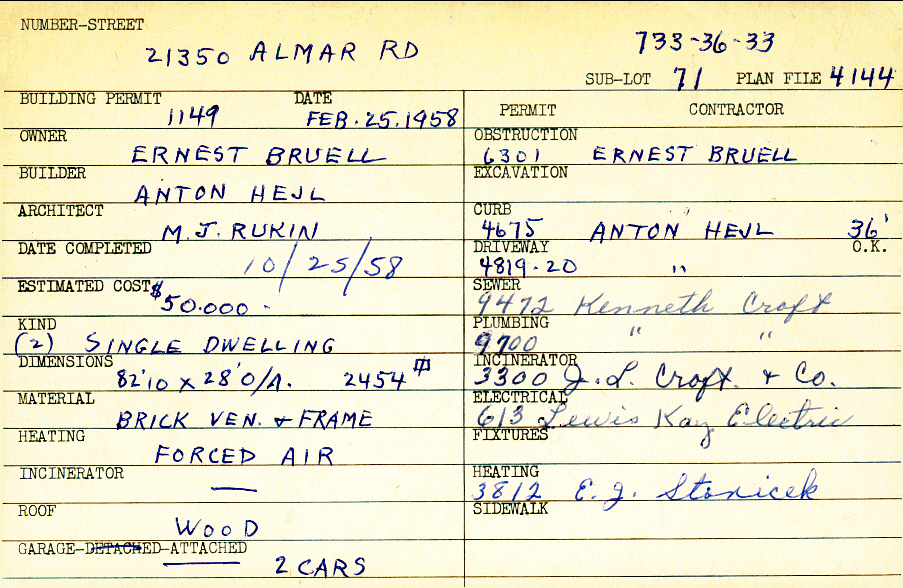 NUMBER-STREET
21350 ALMAR RD
733-36-33
SUB-LOT 71 PLAN FILE 4144
BUILDING PERMIT DATE
1149 FEB. 25. 1958
OWNER
ERNEST BRUELL
BUILDER
ANTON HEJL
ARCHITECT
M. J. RUKIN
DATE COMPLETED
10/25/58
ESTIMATED COST
$50.000 -
KIND
(2) SINGLE DWELLING
DIMENSIONS
82'10 x 28'0/A. 2454
MATERIAL
BRICK VEN. & FRAME
HEATING
FORCED AIR
INCINERATOR
—
ROOF
WOOD
GARAGE-DETACHED-ATTACHED
2 CARS
PERMIT CONTRACTOR
OBSTRUCTION
6301 ERNEST BRUELL
EXCAVATION
CURB
4675 ANTON HEJL 36'
DRIVEWAY O.K.
4819-20 "
SEWER
9472 Kenneth Croft
PLUMBING
9700 " "
INCINERATOR
3300 J. L. Croft. & Co.
ELECTRICAL
613 Lewis Kay Electric
FIXTURES
HEATING
3812 E. J. Stoncek
SIDEWALK